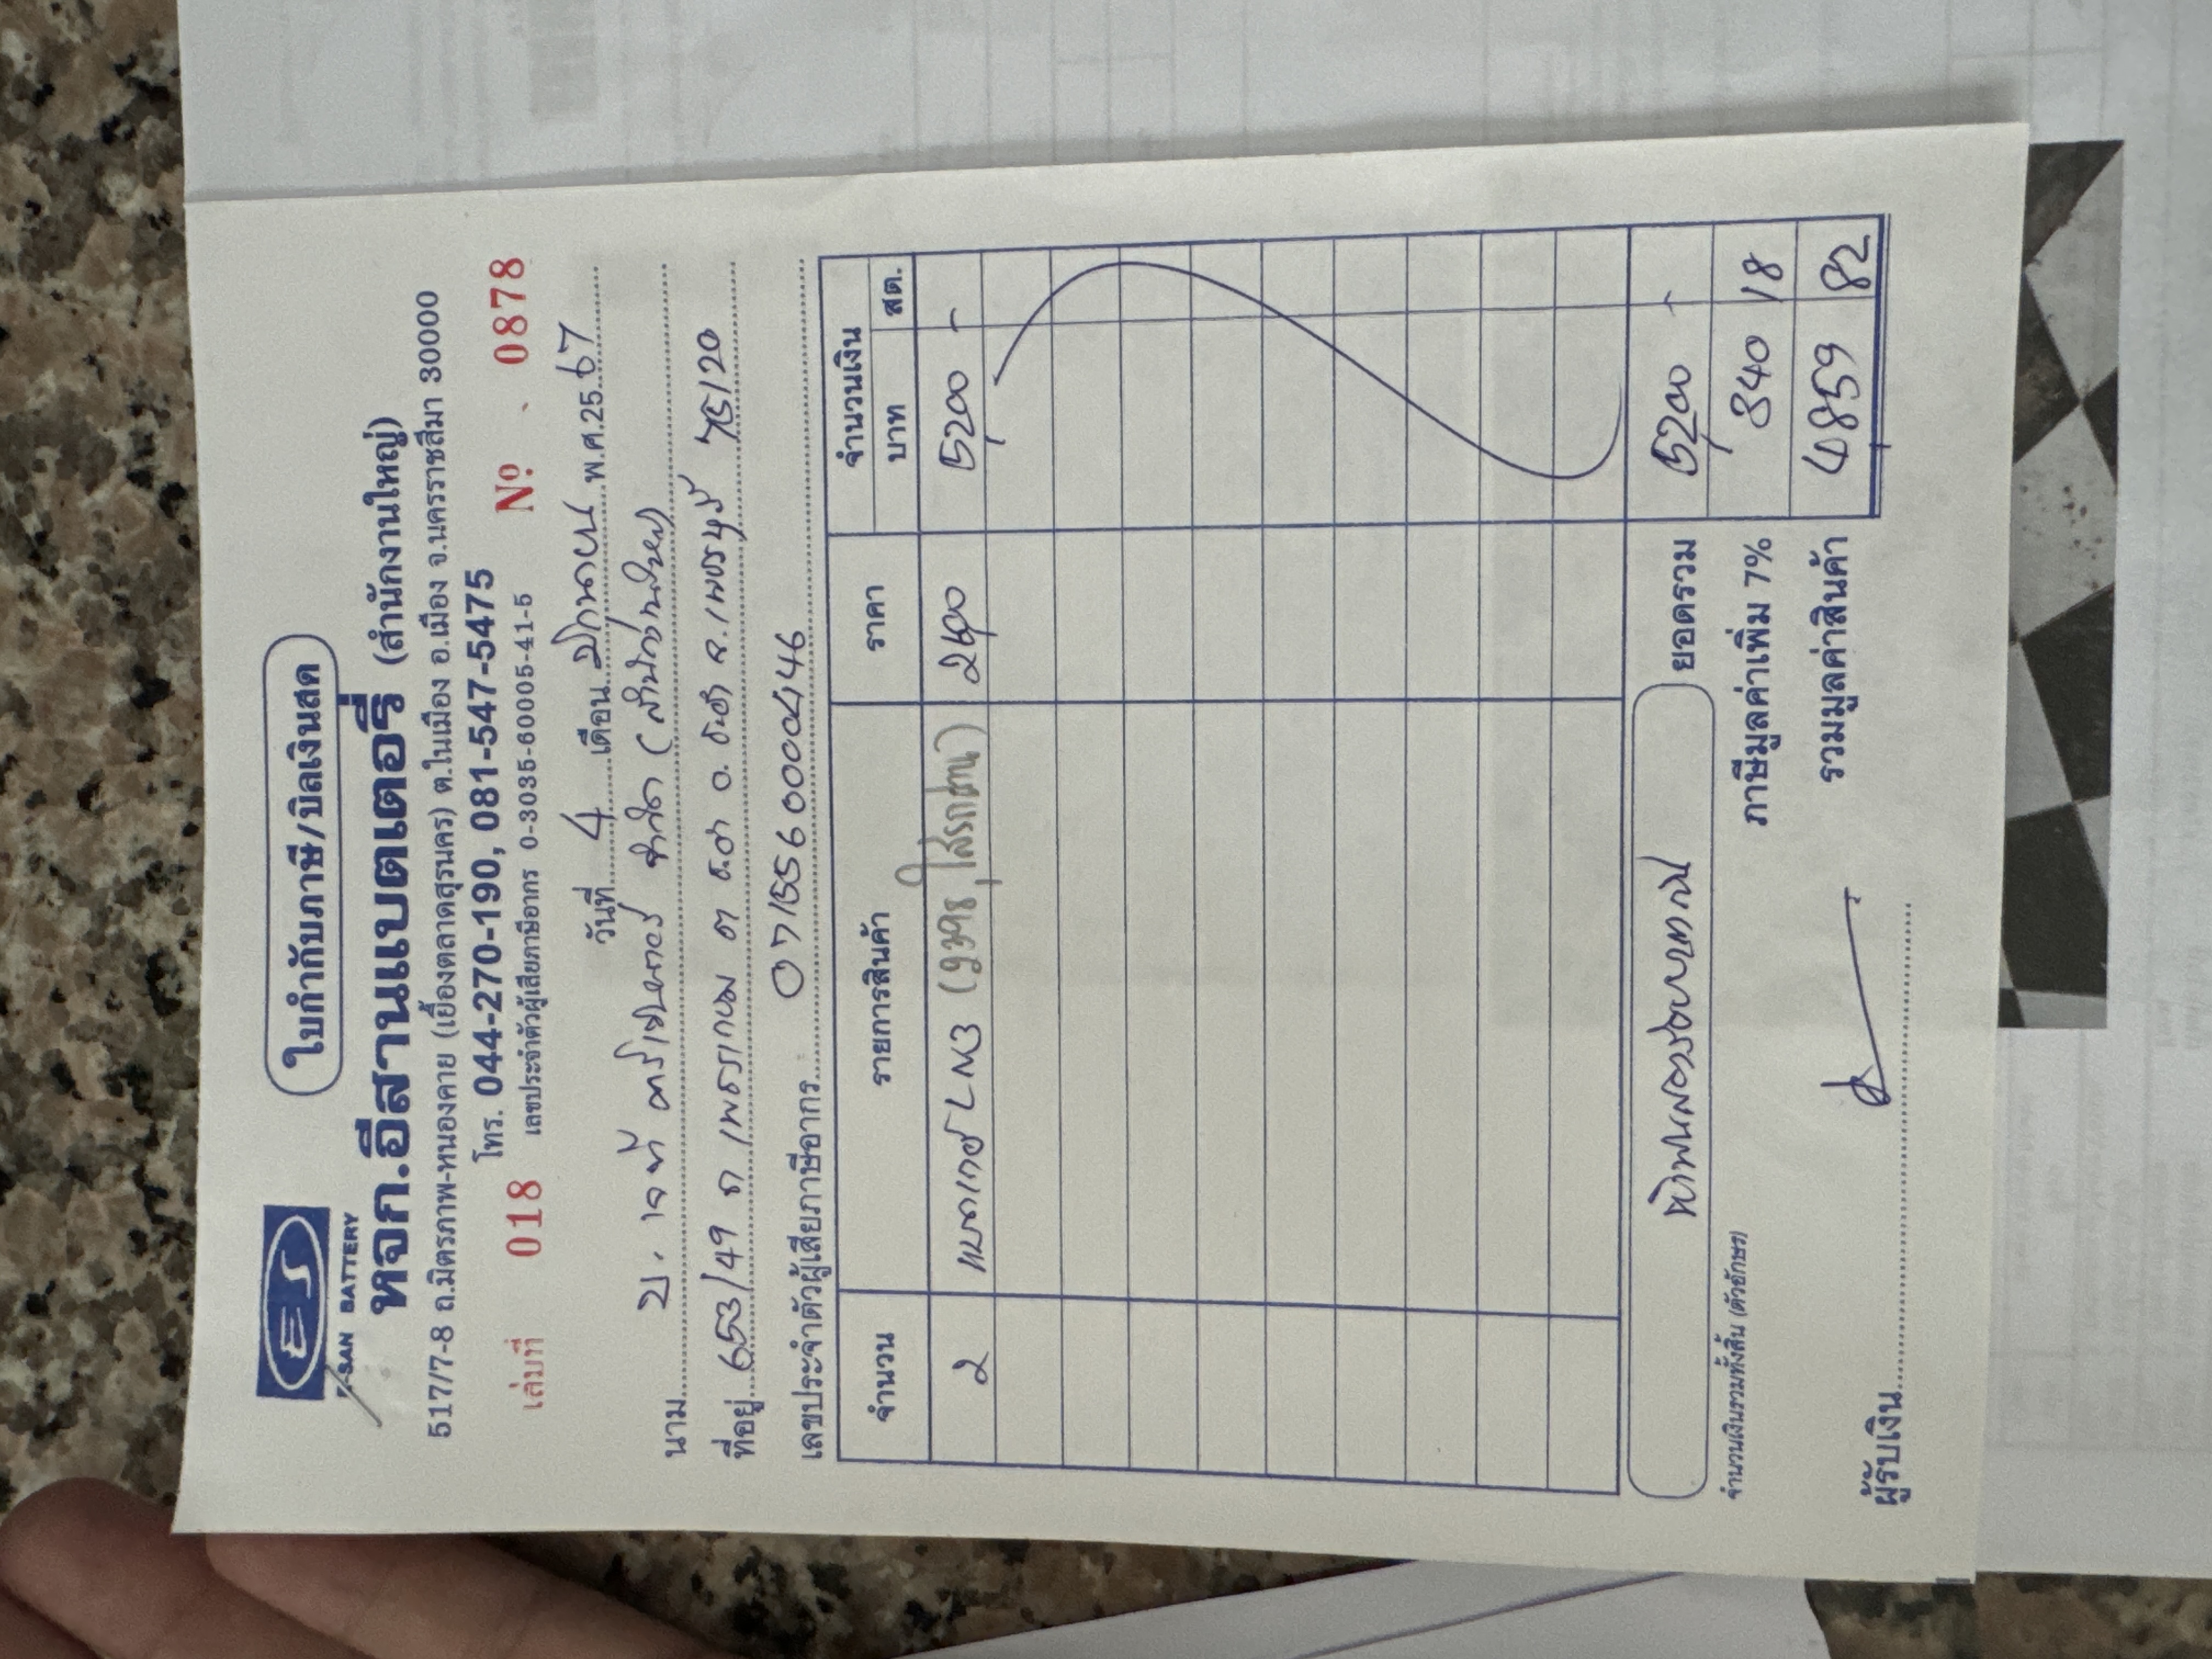 ใบกำกับภาษี/บิลเงินสด
ES
E-SAN BATTERY
หจก.อีสานแบตเตอรี่ (สำนักงานใหญ่)
517/7-8 ถ.มิตรภาพ-หนองคาย (เยื้องตลาดสุรนคร) ต.ในเมือง อ.เมือง จ.นครราชสีมา 30000
โทร. 044-270-190, 081-547-5475
เลขประจำตัวผู้เสียภาษีอากร 0-3035-60005-41-5
เล่มที่ 018 Nº 0878
วันที่ 4 เดือน พ.ศ.2567
นาม บ. จำกัด (สำนักงานใหญ่)
ที่อยู่ 653/49 ถ เพชรเกษม ต ชะอำ อ. ชะอำ จ. เพชรบุรี 76120
เลขประจำตัวผู้เสียภาษีอากร 0715560000446
จำนวน รายการสินค้า ราคา จำนวนเงิน
บาท สต.
2 แบตเตอรี่ LN3 2600 5200 -
ห้าพันสองร้อยบาทถ้วน ยอดรวม 5200 -
จำนวนเงินรวมทั้งสิ้น (ตัวอักษร) ภาษีมูลค่าเพิ่ม 7% 340 18
รวมมูลค่าสินค้า 4859 82
ผู้รับเงิน